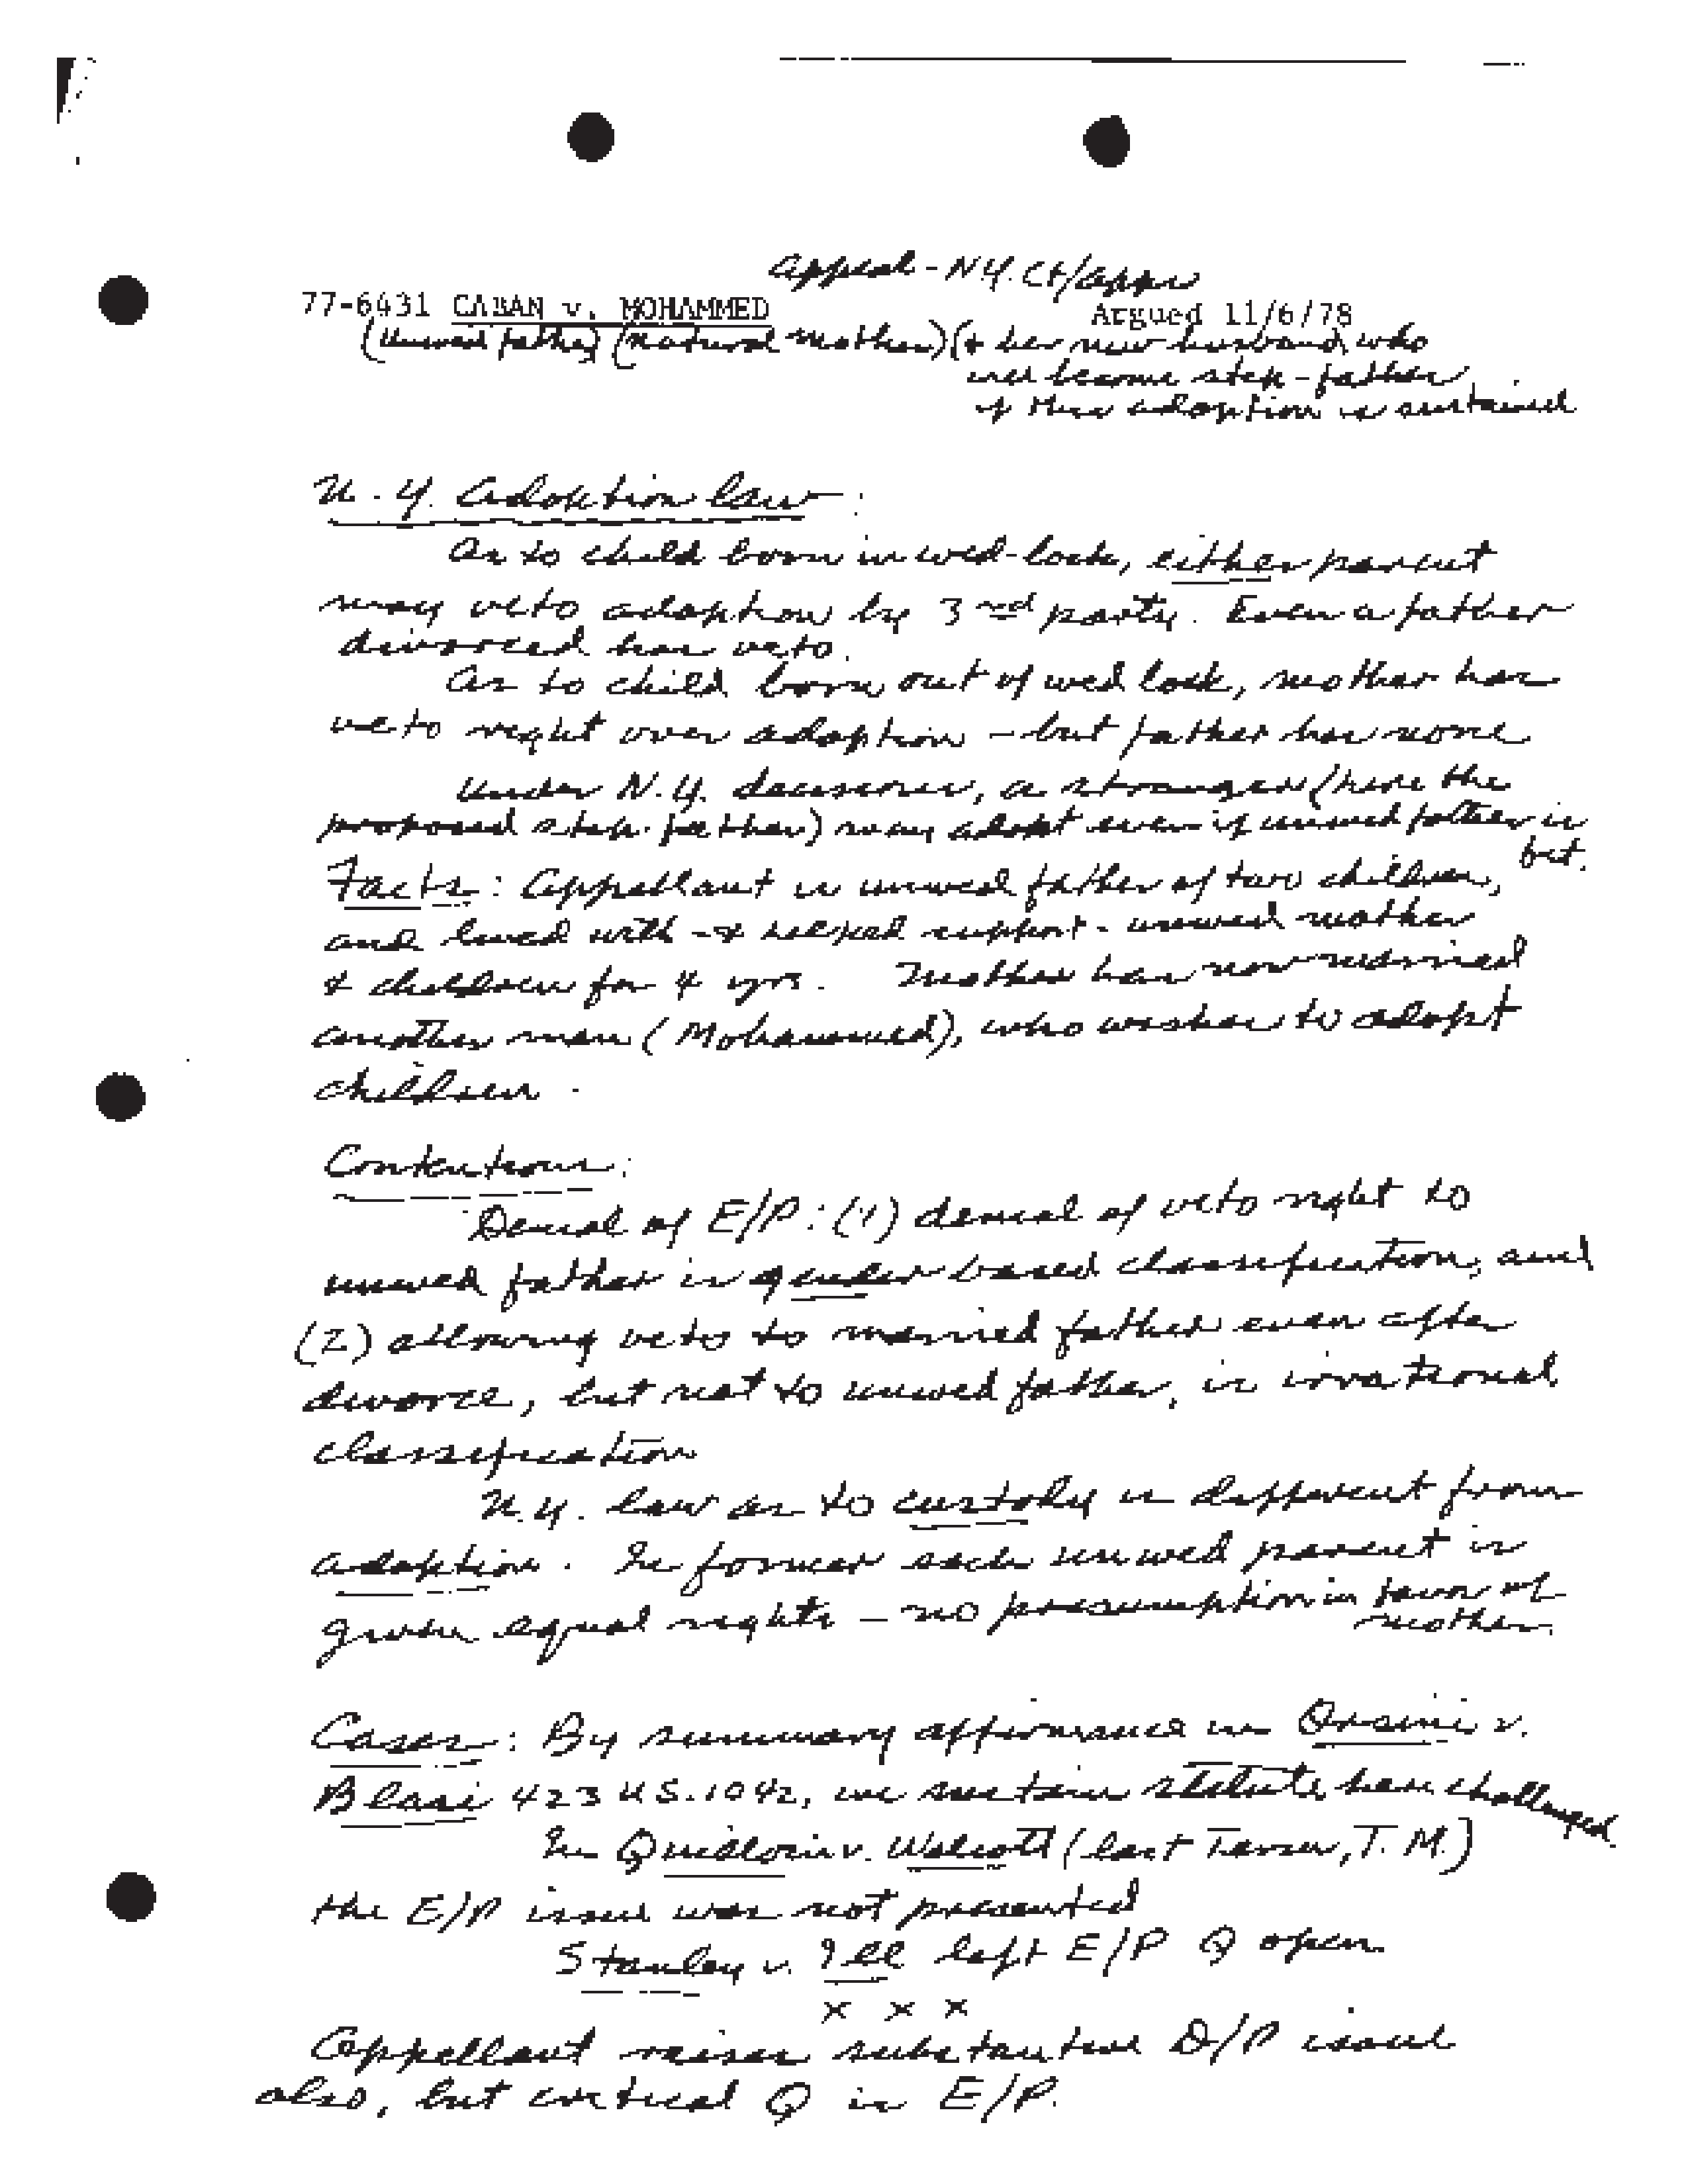 Appeal - N.Y. Ct/Apps
77-6431 CABAN v. MOHAMMED Argued 11/6/78
(Unwed father) (natural mother) (& her new husband who
will become step-father
if this adoption is sustained
N.Y. Adoption law:
As to child born in wed-lock, either parent
may veto adoption by 3rd party. Even a father
divorced has veto.
As to child born out of wed lock, mother has
veto right over adoption - but father has none
Under N.Y. decisions, a stranger (here the
proposed step-father) may adopt even if unwed father is
fit.
Facts: Appellant is unwed father of two children,
and lived with - & helped support - unwed mother
& children for 4 yrs. Mother has now married
another man (Mohammed), who wishes to adopt
children.
Contentions:
Denial of E/P: (1) denial of veto right to
unwed father is gender based classification, and
(2) allowing veto to married father even after
divorce, but not to unwed father, is irrational
classification
N.Y. law as to custody is different from
adoption. In former each unwed parent is
given equal rights - no presumption in favor of
mother.
Cases: By summary affirmance in Orsini v.
Blasi 423 U.S. 1042, we sustain statute here challenged
In Quilloin v. Walcott (last Term, T.M.)
the E/P issue was not presented
Stanley v. Ill left E/P Q open.
x x x
Appellant raises substantive D/P issue
also, but critical Q is E/P.